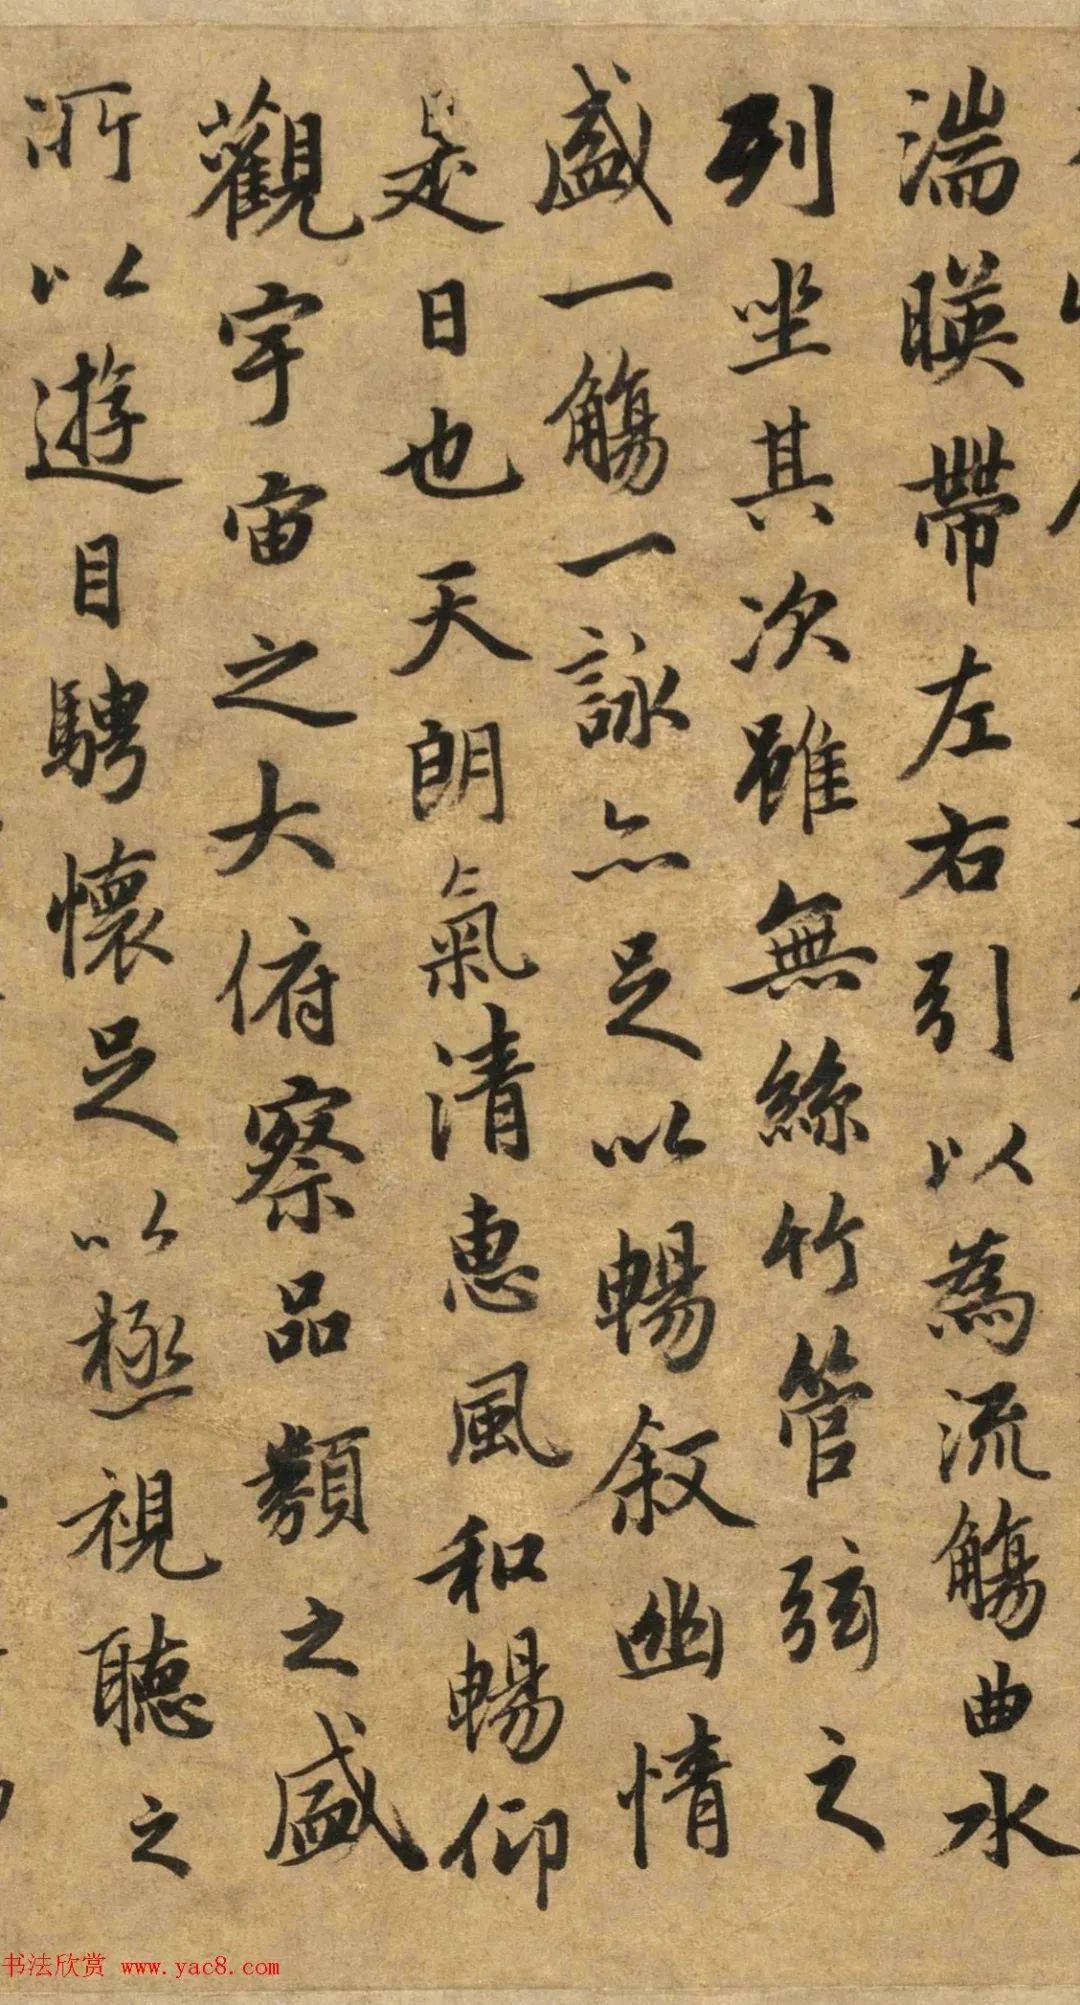 湍暎帶左右引以為流觴曲水
列坐其次雖無絲竹管弦之
盛一觴一詠亦足以暢叙幽情
是日也天朗氣清惠風和暢仰
觀宇宙之大俯察品類之盛
所以遊目騁懷足以極視聽之
书法欣赏 www.yac8.com